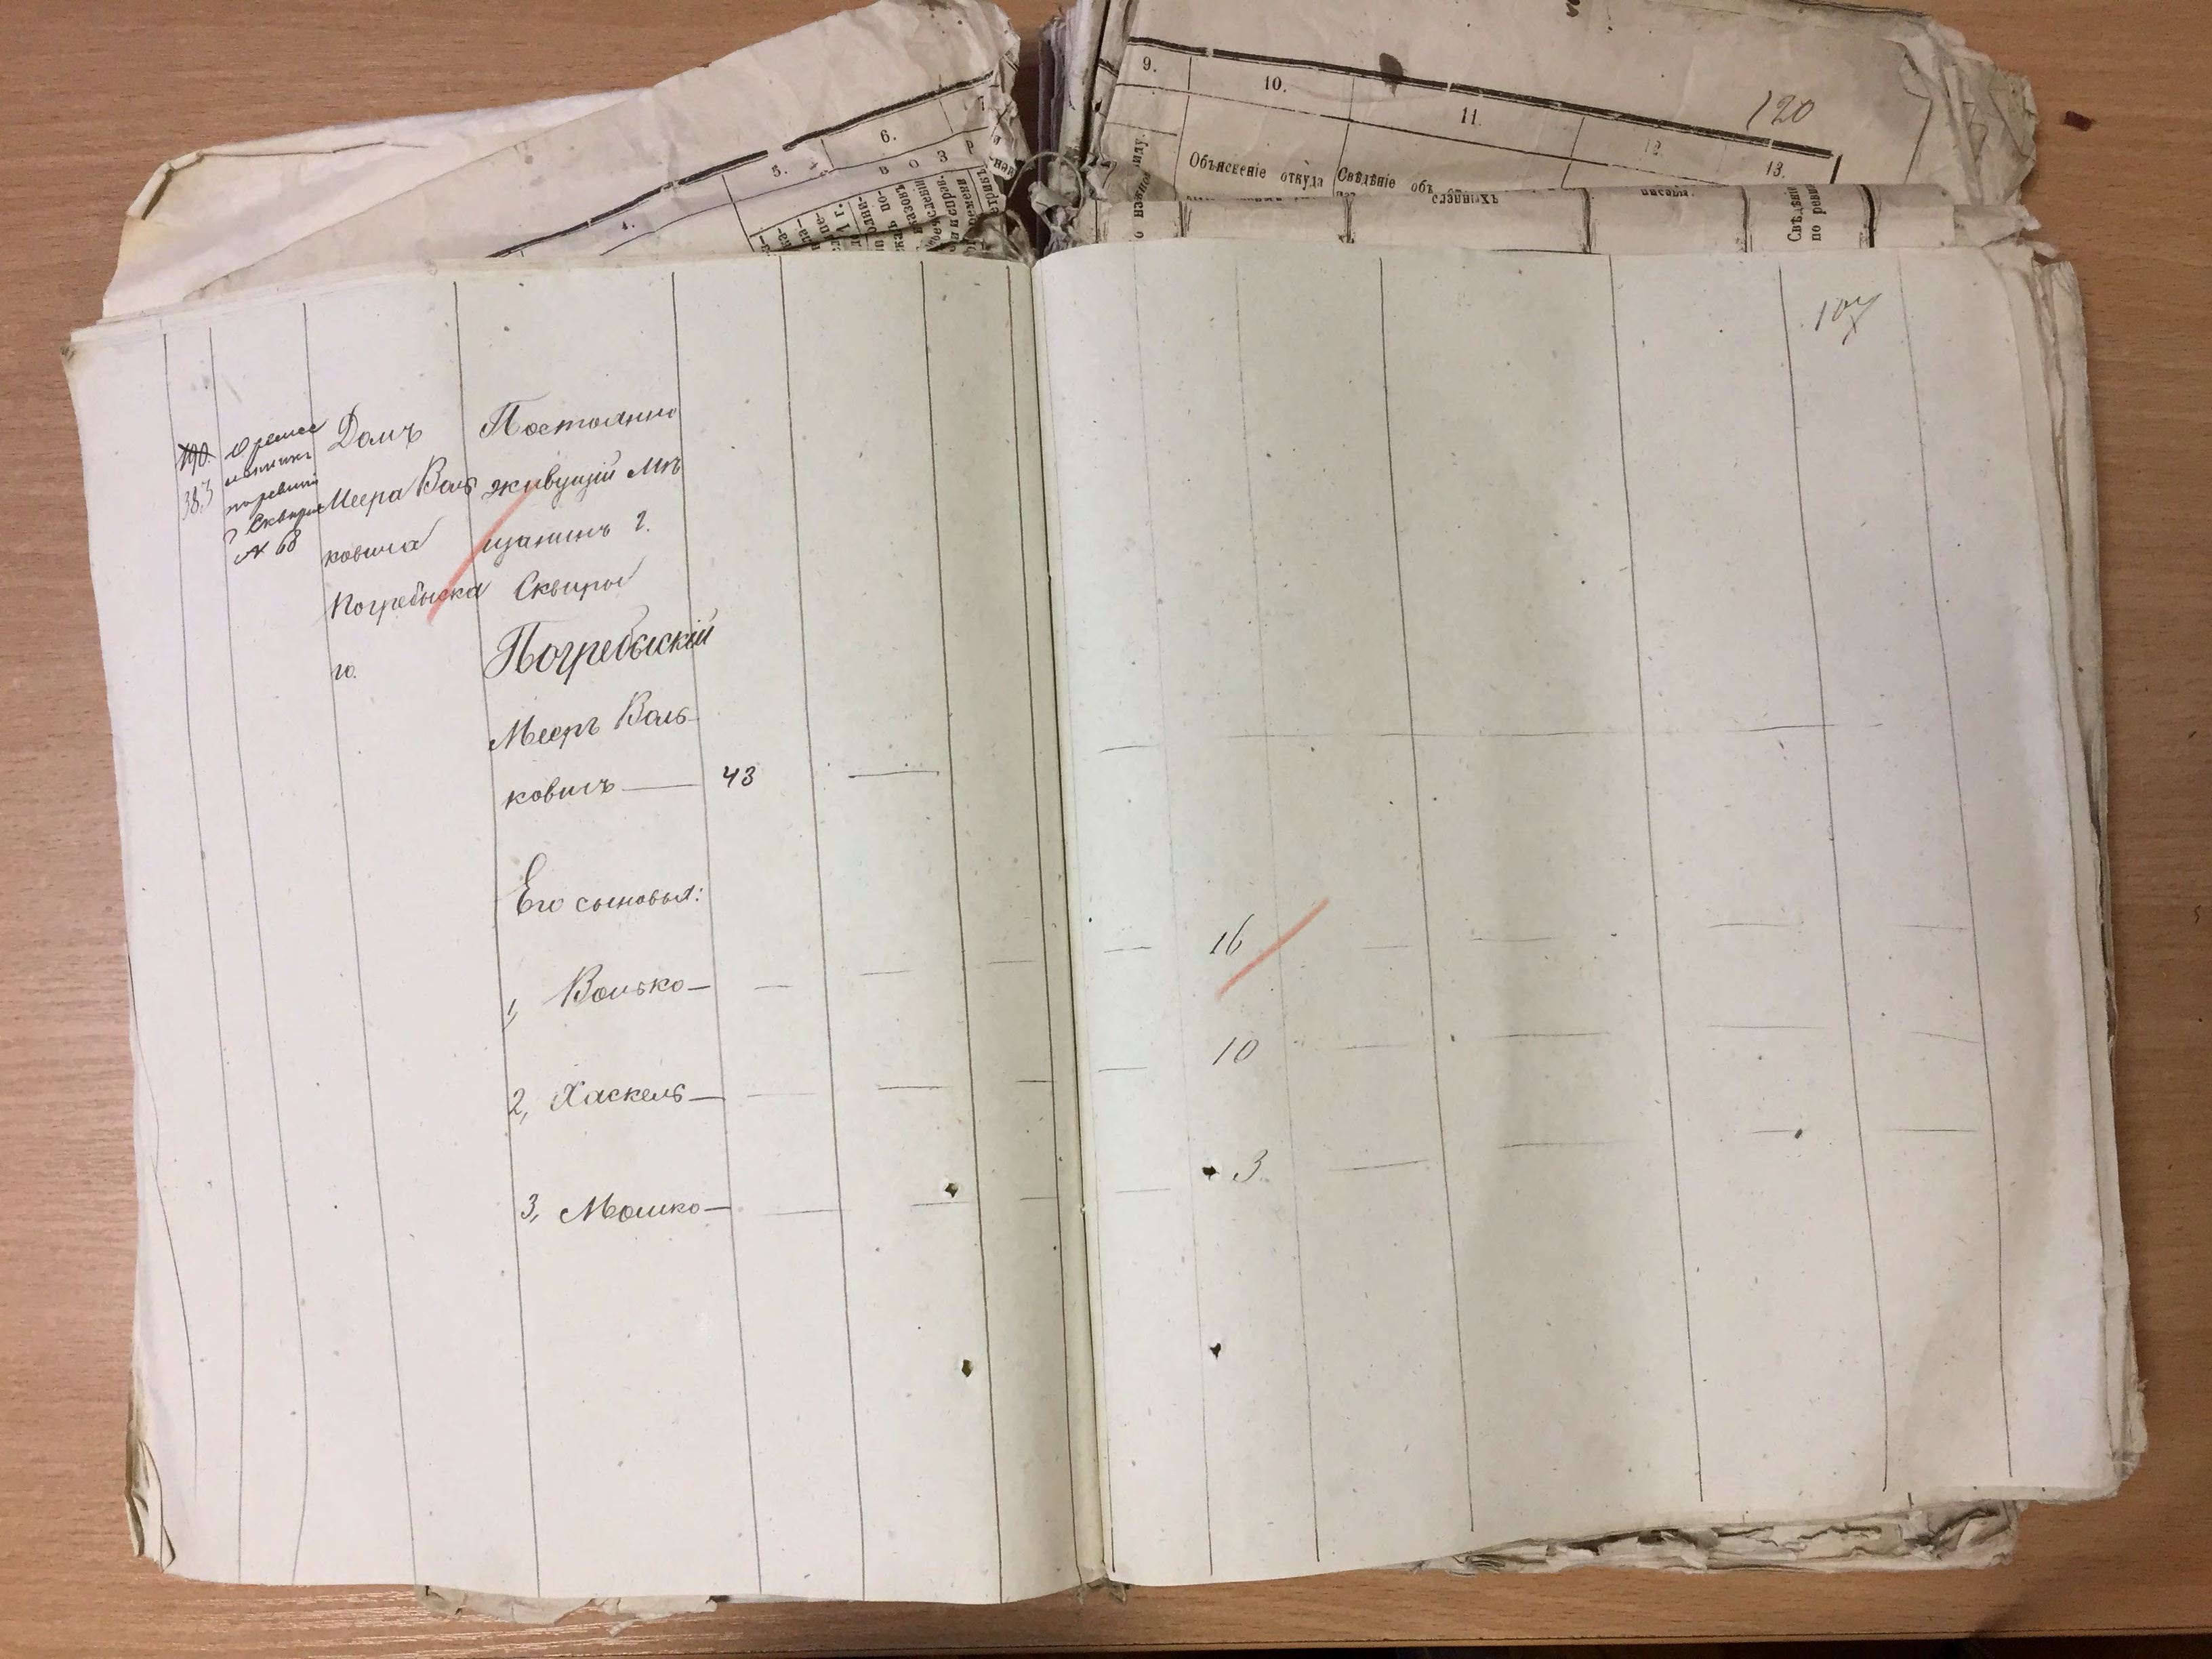 6.
5.
4.
9.
10.
11.
12.
13.
120
Объясненіе откуда
Свѣдѣніе объ
Свѣдѣні
по реви
107
190.
383
по ревизіи
г Сквиры
№ 68
Домъ
Меера Воль
ковича
Погребыска
го.
Постоянно
живущій мѣ
щанинъ г.
Сквиры
Погребыскій
Мееръ Воль-
ковичъ — 43 —
Его сыновья:
1, Волько — — — — — 16 — — — —
2, Хаскель — — — — — 10 — — — —
3, Мошко — — — — — 3. — — — —